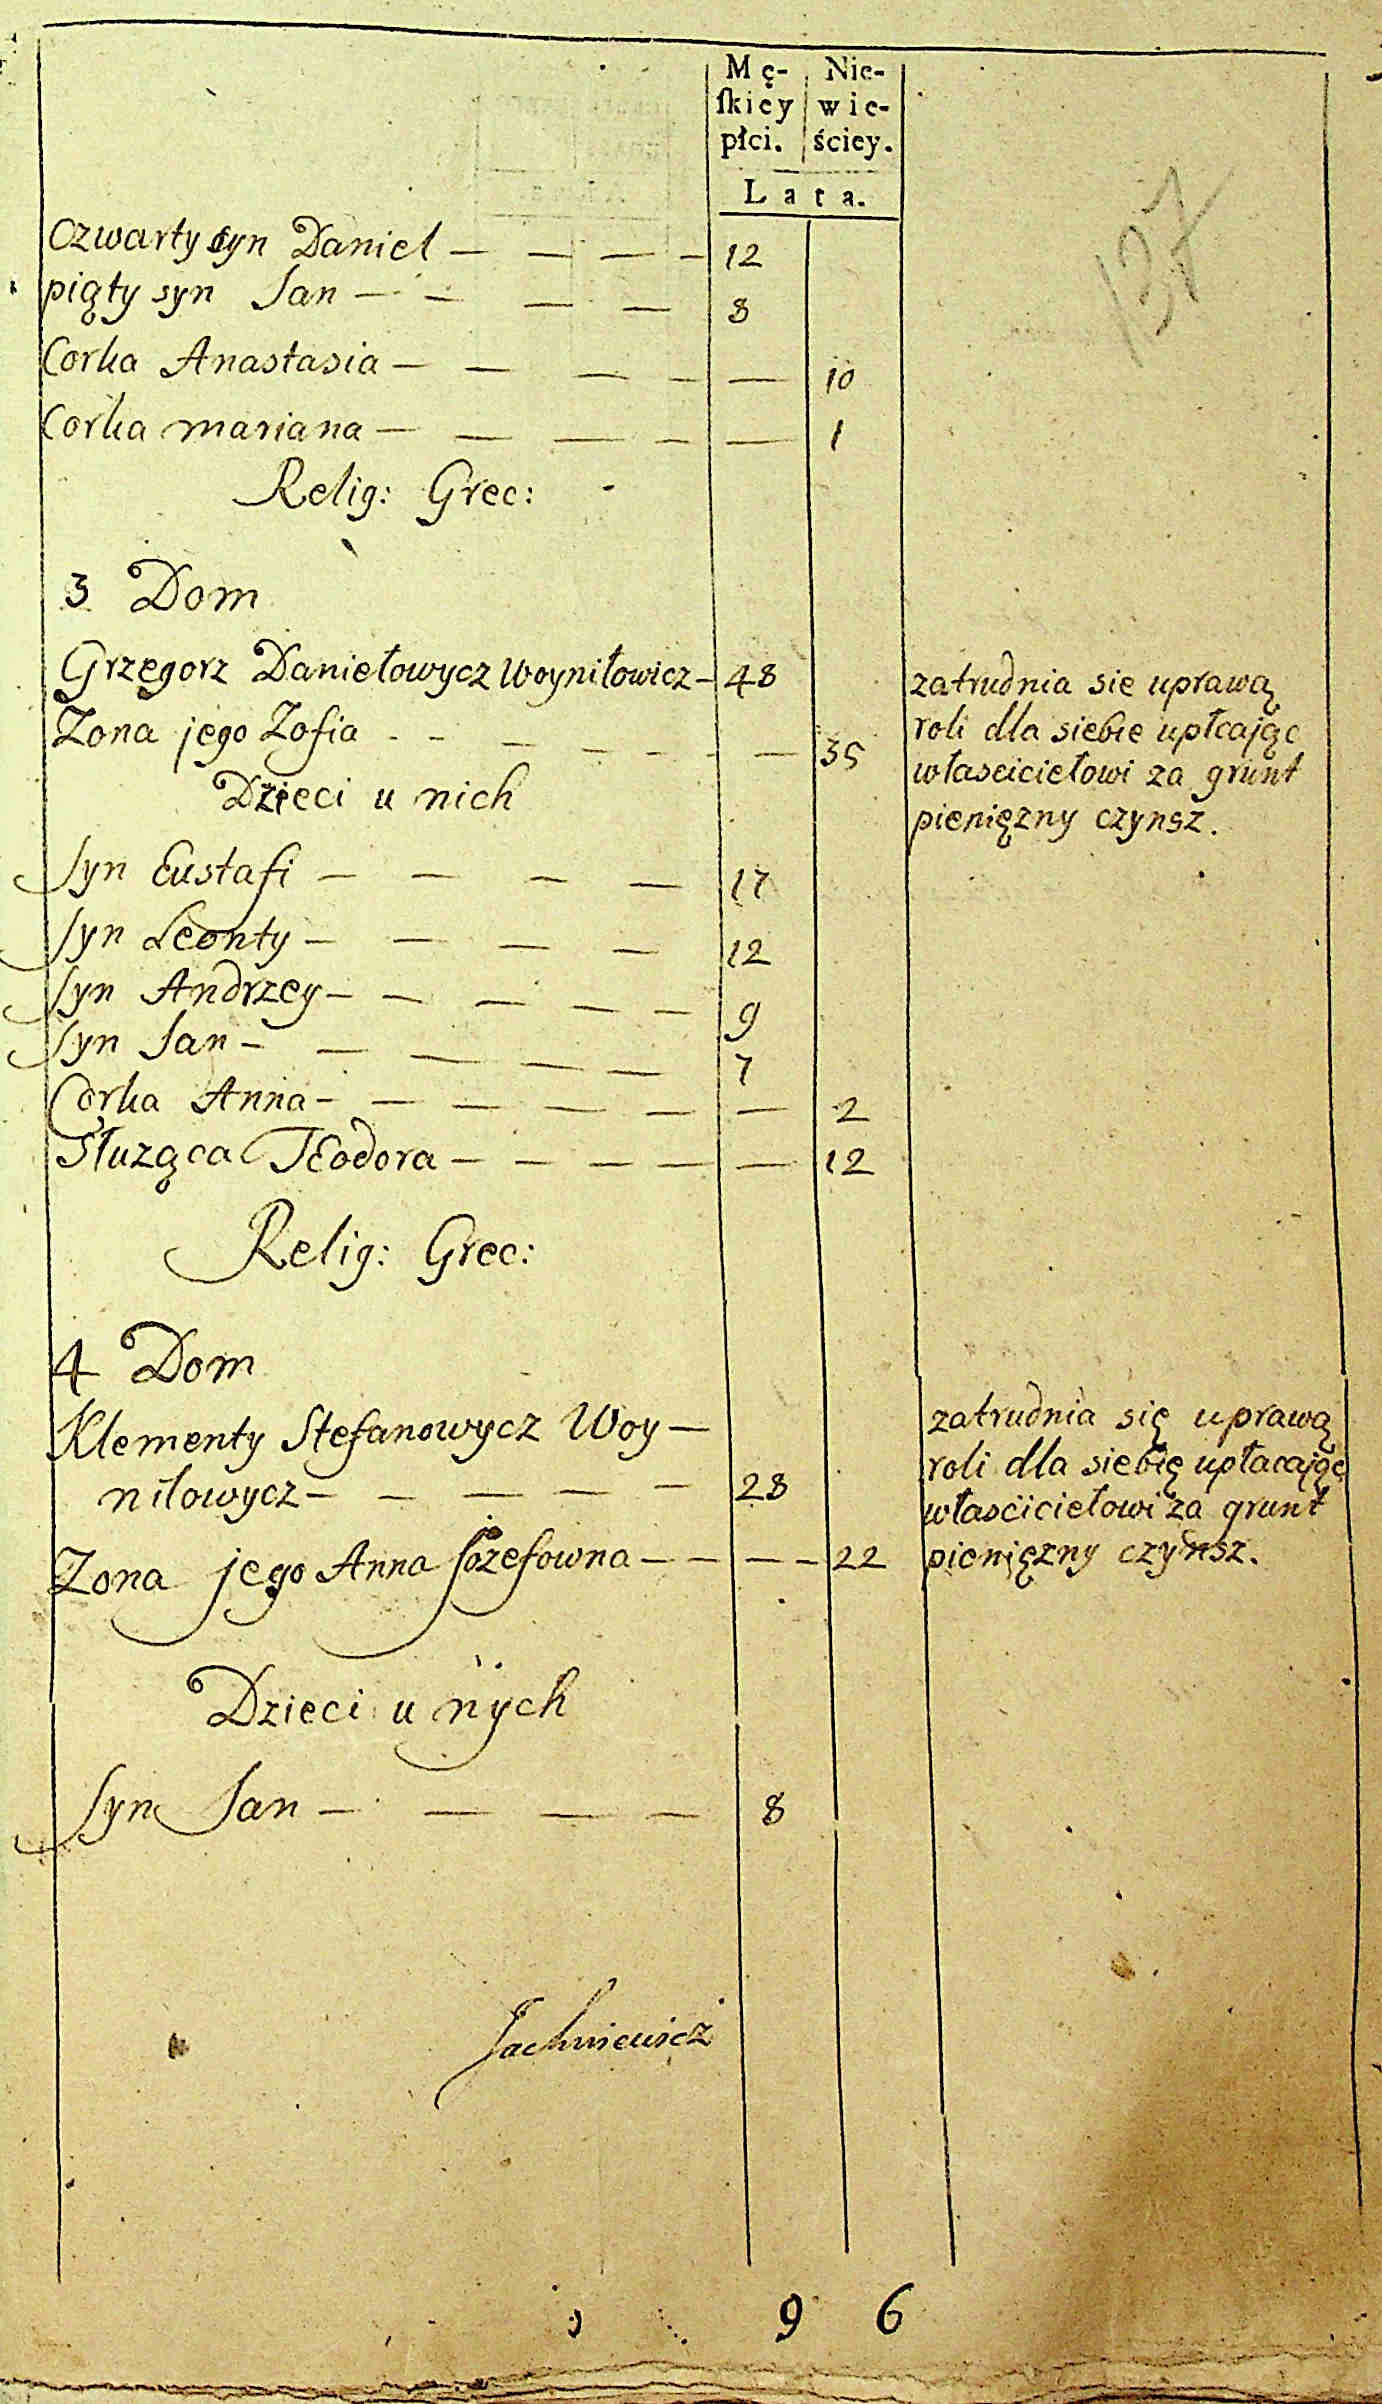 Mę- Nie-
skiey wie-
płci. ściey.
Lata.
137
Czwarty syn Daniel — — — — 12
piąty syn Jan — — — — 8
Corka Anastasia — — — — — 10
Corka mariana — — — — — 1
Relig: Grec:
3 Dom
Grzegorz Daniełowycz Woyniłowicz — 48
Zona jego Zofia - - - - - - — 35
zatrudnia sie uprawą
roli dla siebie upłcając
własciciełowi za grunt
pienięzny czynsz.
Dzieci u nich
Syn Eustafi — — — — 17
Syn Leonty — — — — 12
Syn Andrzey — — — — — 9
Syn Jan — — — — — 7
Corka Anna — — — — — — 2
Słuząca TEodora — — — — — 12
Relig: Grec:
4 Dom
Klementy Stefanowycz Woy —
niłowycz — — — — — 28
Zona jego Anna Jozefowna — — — — 22
zatrudnia się uprawą
roli dla siebię upłacając
właściciełowi za grunt
pienięzny czynsz.
Dzieci u nych
Syn Jan — — — — 8
Jachniewicz
9 6